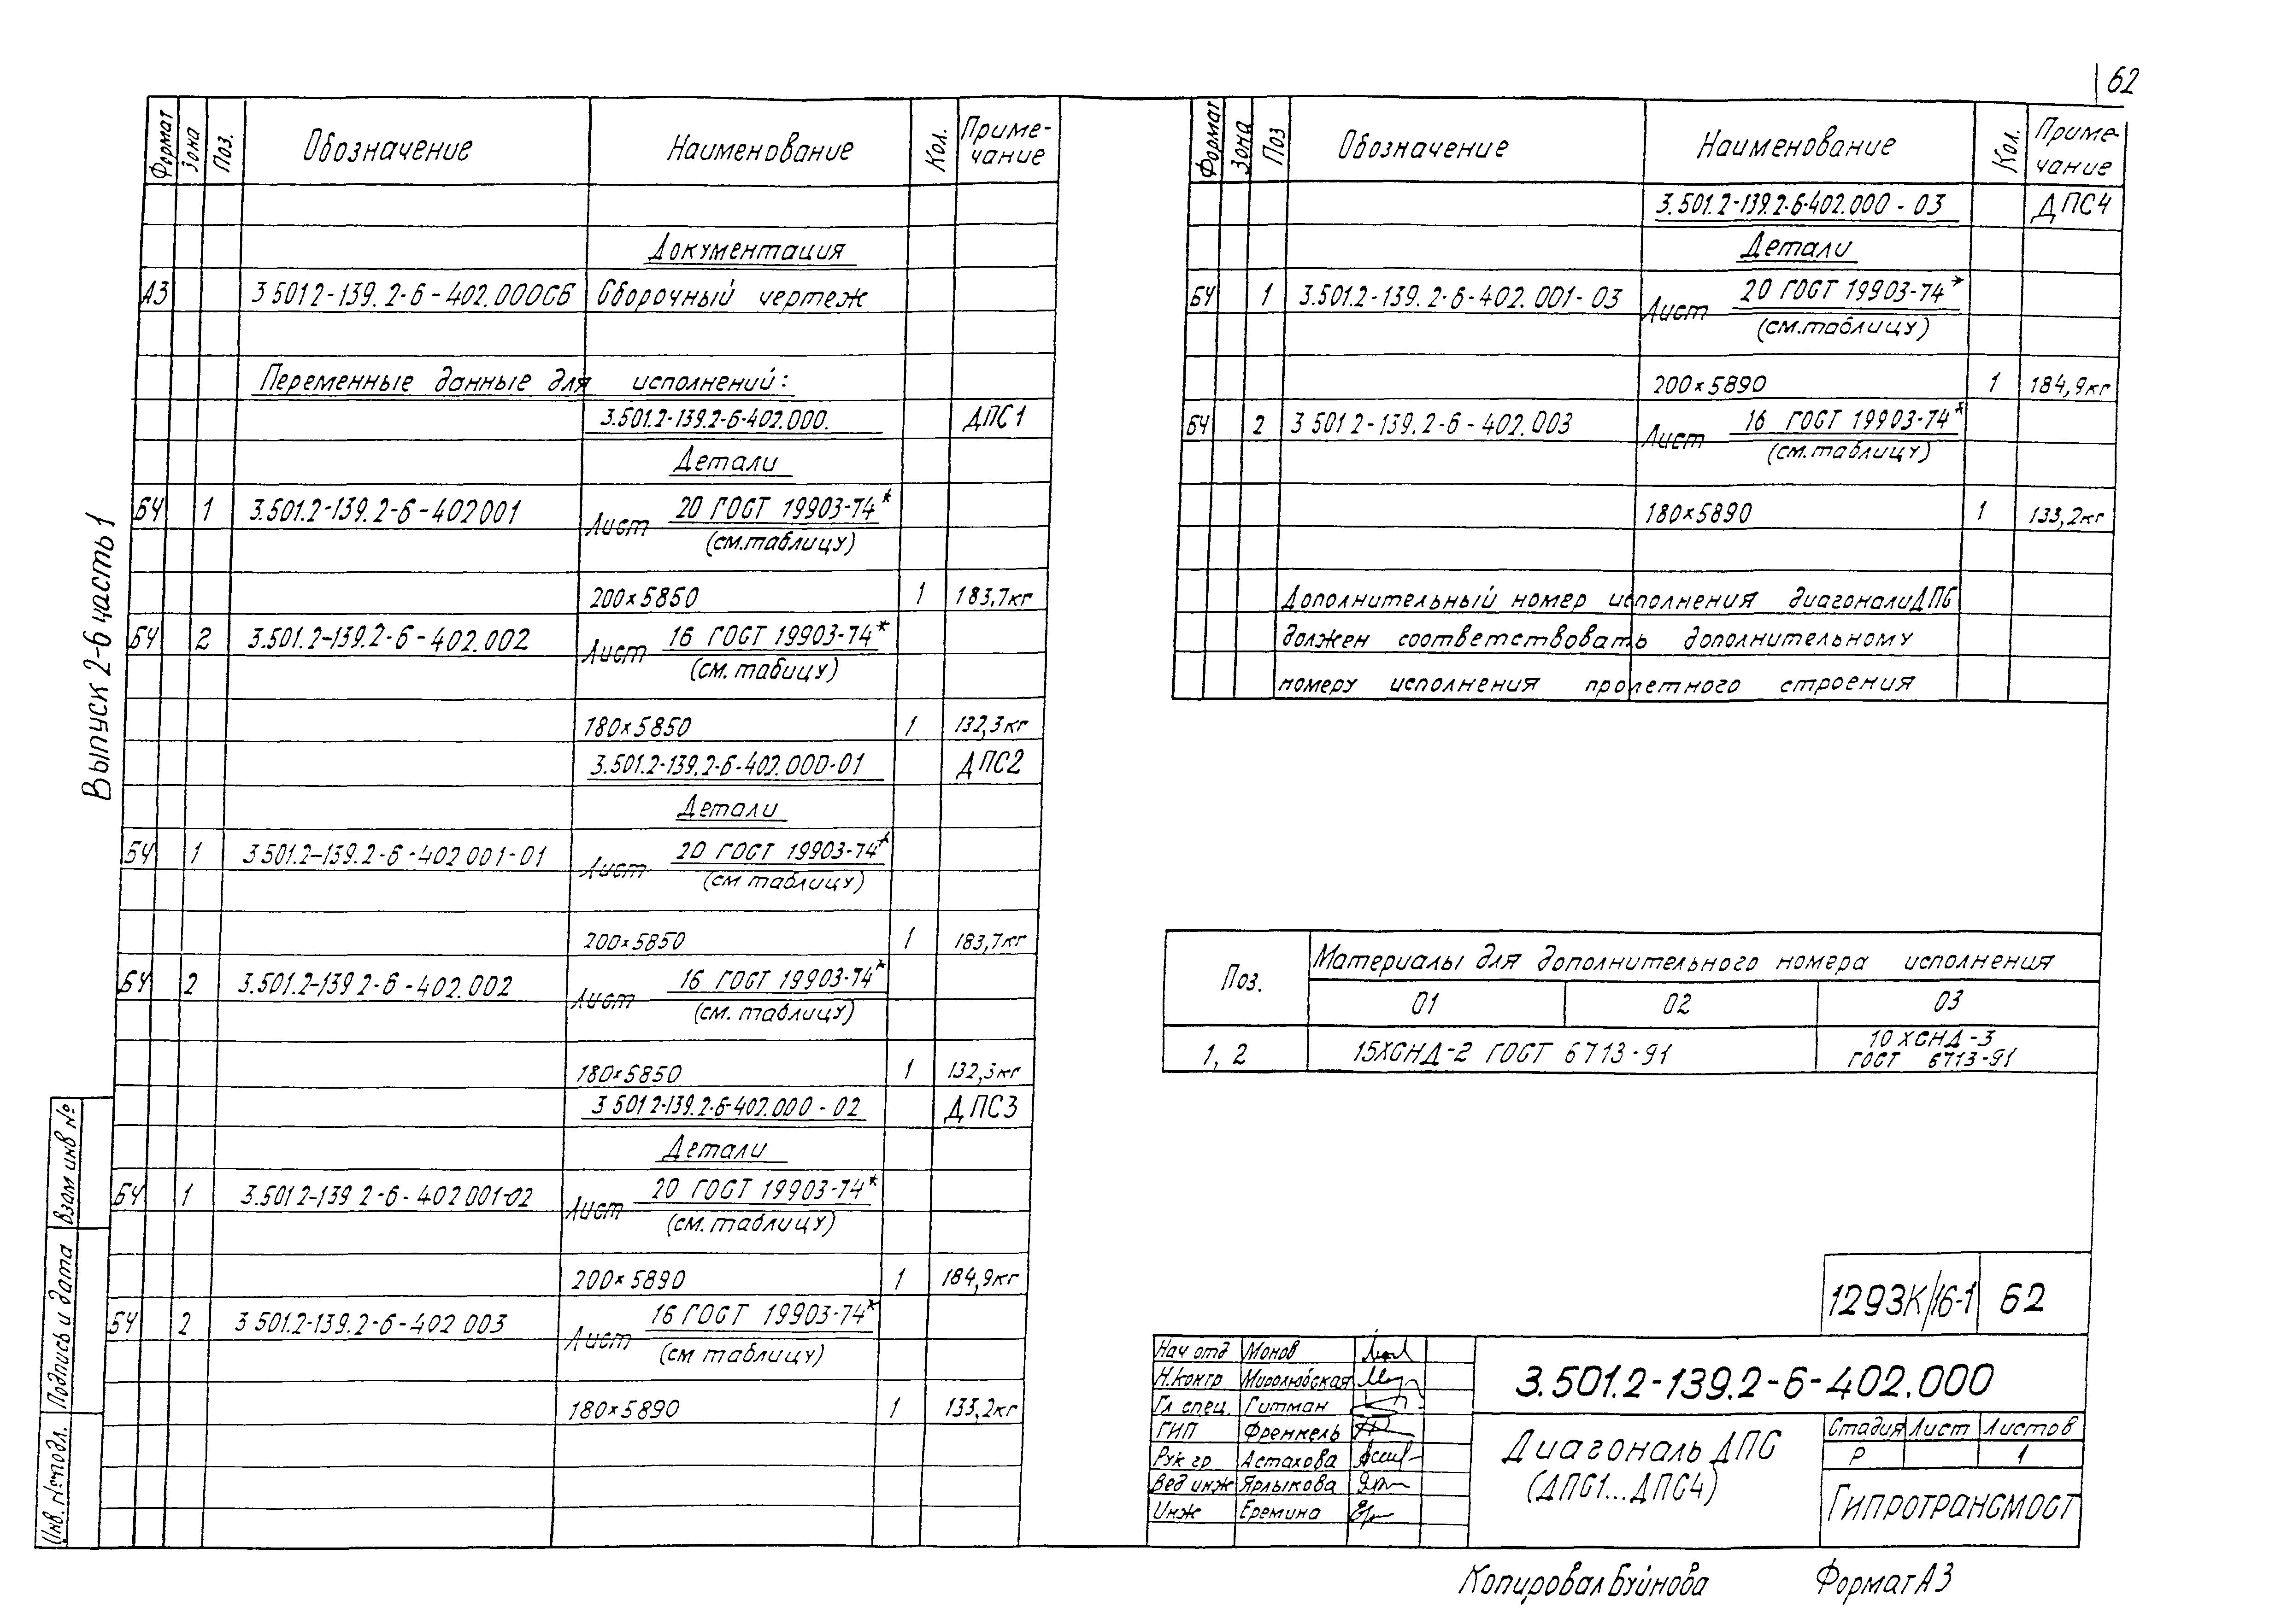 62
Выпуск 2-6 часть 1
Формат Зона Поз. Обозначение Наименование Кол. Приме-чание
Документация
А3 3 501 2-139. 2-6-402.000СБ Сборочный чертеж
Переменные данные для исполнений:
3.501.2-139.2-6-402.000. ДПС1
Детали
БЧ 1 3.501.2-139. 2-6-402001 Лист 20 ГОСТ 19903-74*
(см.таблицу)
200×5850 1 183,7кг
БЧ 2 3.501.2-139.2-6-402.002 Лист 16 ГОСТ 19903-74*
(см. табицу)
180×5850 1 132,3кг
3.501.2-139.2-6-402.000-01 ДПС2
Детали
БЧ 1 3 501.2-139.2-6-402 001-01 Лист 20 ГОСТ 19903-74*
(см таблицу)
200×5850 1 183,7кг
БЧ 2 3.501.2-139 2-6-402.002 Лист 16 ГОСТ 19903-74*
(см. таблицу)
180×5850 1 132,3кг
3 501 2-139.2-6-402.000-02 ДПС3
Детали
БЧ 1 3.501 2-139 2-6-402 001-02 Лист 20 ГОСТ 19903-74*
(см. таблицу)
200×5890 1 184,9кг
БЧ 2 3 501.2-139.2-6-402 003 Лист 16 ГОСТ 19903-74*
(см таблицу)
180×5890 1 133,2кг
Взам инв №
Подпись и дата
Инв. № подл.
Формат Зона Поз Обозначение Наименование Кол. Приме-чание
3.501.2-139.2-6-402.000-03 ДПС4
Детали
БЧ 1 3.501.2-139. 2-6-402. 001-03 Лист 20 ГОСТ 19903-74*
(см.таблицу)
200×5890 1 184,9кг
БЧ 2 3 501 2-139. 2-6-402.003 Лист 16 ГОСТ 19903-74*
(см.таблицу)
180×5890 1 133,2кг
Дополнительный номер исполнения диагонали ДПС
должен соответствовать дополнительному
номеру исполнения пролетного строения
Поз. Материалы для дополнительного номера исполнения
01 02 03
1, 2 15ХСНД-2 ГОСТ 6713-91 10 ХСНД-3
ГОСТ 6713-91
1293К/16-1 62
Нач отд Монов
Н.контр Миролюбская
Гл спец. Гитман
ГИП Френкель
Рук гр Астахова
Вед инж Ярлыкова
Инж Еремина
3.501.2-139.2-6-402.000
Диагональ ДПС
(ДПС1...ДПС4)
Стадия Лист Листов
Р 1
Гипротрансмост
Копировал Буйнова Формат А3